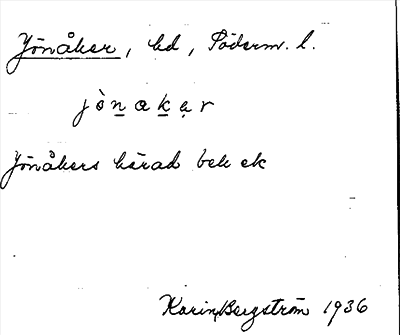 Jönåker, hd, Söderm. l.
jònakạr
Jönåkers härad bebek
Karin Bergström 1936